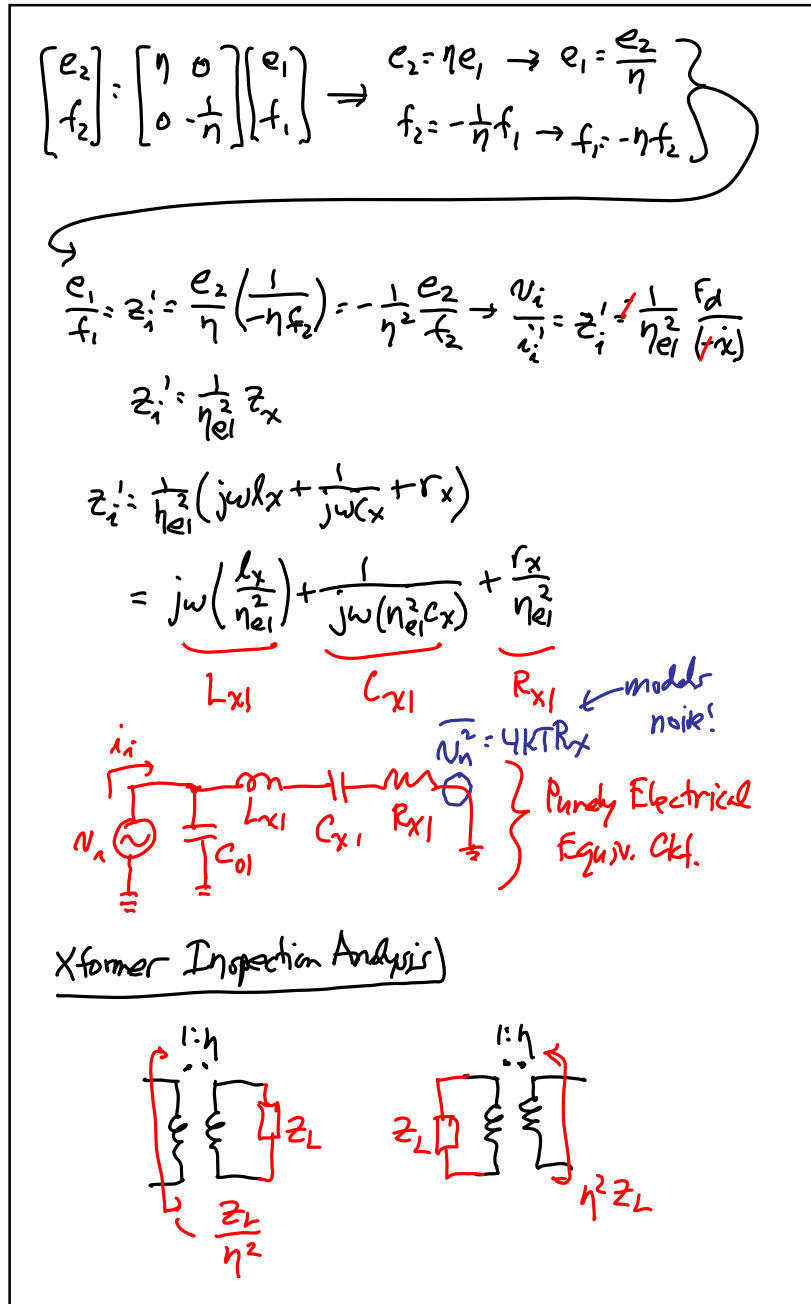 [e₂ f₂] = [η 0 0 -1/η] [e₁ f₁] ⟹ e₂ = ηe₁ → e₁ = e₂/η
f₂ = -1/η f₁ → f₁ = -ηf₂
e₁/f₁ = z_i' = e₂/η (1/(-ηf₂)) = -1/η² e₂/f₂ → v_i/i_i' = z_i' = -1/η_e1² F_d/(-ẋ)
z_i' = 1/η_e1² z_x
z_i' = 1/η_e1² (jωl_x + 1/(jωc_x) + r_x)
= jω(l_x/η_e1²) + 1/(jω(η_e1² c_x)) + r_x/η_e1²
L_x1 C_x1 R_x1
models noise!
v_n² = 4kTR_x
i_i
v_i C_01 L_x1 C_x1 R_x1
Purely Electrical
Equiv. Ckt.
Xformer Inspection Analysis
1:η 1:η
Z_L Z_L
Z_L/η² η² Z_L